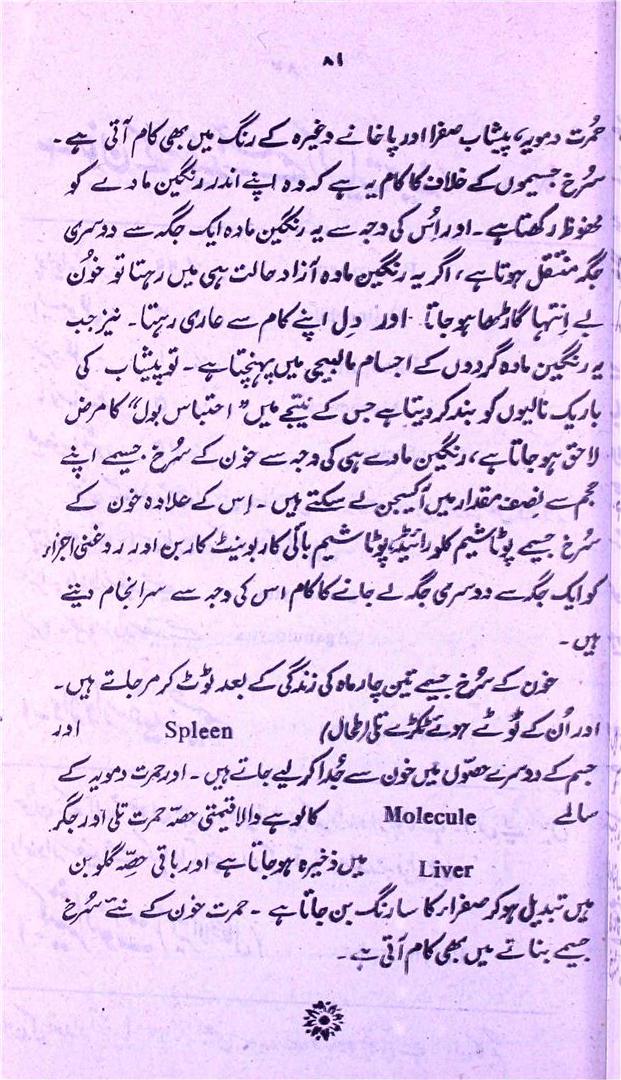 ۸۱
حمُرت دمویہ، پیشاب صفرا اور پاخانے وغیرہ کے رنگ میں بھی کام آتی ہے۔
سُرخ جسیموں کے خلاف کا کام یہ ہے کہ وہ اپنے اندر رنگین مادے کو
محفوظ رکھتا ہے۔ اور اُس کی وجہ سے یہ رنگین مادہ ایک جگہ سے دوسری
جگہ منتقل ہوتا ہے، اگر یہ رنگین مادہ آزاد حالت ہی میں رہتا تو خوُن
بے اِنتہا گاڑھا ہو جاتا اور دِل اپنے کام سے عاری رہتا۔ نیز جب
یہ رنگین مادہ گردوں کے اجسام مالبیجی میں پہنچتا ہے۔ تو پیشاب کی
باریک نالیوں کو بند کر دیتا ہے جس کے نیتجے میں "احتباس بول" کا مرض
لاحق ہو جاتا ہے، رنگین مادے ہی کی وجہ سے خون کے سُرخ جسیمے اپنے
حجم سے نِصف مقدار میں آکیجن لے سکتے ہیں۔ اِس کے علاوہ خون کے
سُرخ جسیمے پوٹاشیم کلورائیڈ، پوٹاشیم بائی کاربونیٹ کاربن اور روغنی اجزار
کو ایک جگہ سے دوسری جگہ لے جانے کا کام اس کی وجہ سے سرانجام دیتے
ہیں۔
خون کے سُرخ جسیمے تین چار ماہ کی زندگی کے بعد ٹوٹ کر مر جاتے ہیں۔
اور اُن کے ٹوُٹے ہوئے ٹکڑے تلی (طحال) Spleen اور
جسم کے دوسرے حصّوں میں خون سے جُدا کر لیے جاتے ہیں۔ اور حمرت دمویہ کے
سالمے Molecule کا لوہے والا قیمتی حصّہ حمرت تلی اور جگر
Liver میں ذخیرہ ہو جاتا ہے اور باقی حصِّہ گلوبن
میں تبدیل ہو کر صفرا کا سا رنگ بن جاتا ہے۔ حمرت خون کے نئے سُرخ
جسیمے بنانے میں بھی کام آتی ہے۔